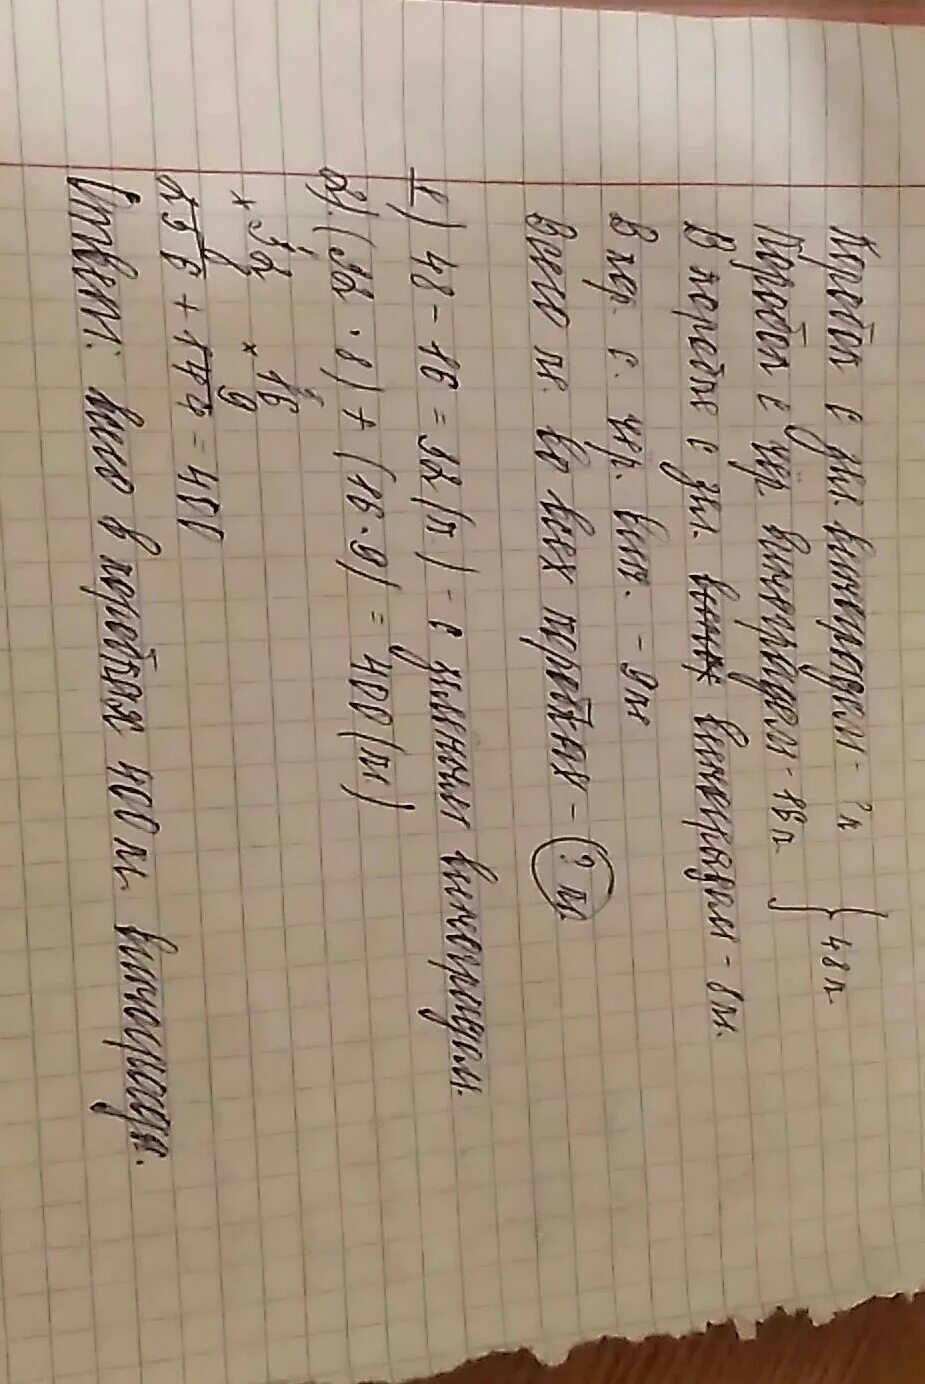 Коробок с зел. виноградом - ? к } 48 к
Коробок с чёр. виноградом - 16 к
В коробке с зел. виноградом - 8 кг.
В кор. с. чёр. вин. - 9 кг
Всего кг. во всех коробках - ? кг.
1) 48 - 16 = 32 (к) - с зелёным виноградом.
2). (32 · 8) + (16 · 9) = 400 (кг)
× 32 × 16
8 9
256 + 144 = 400
Ответ: всего в коробках 400 кг винограда.